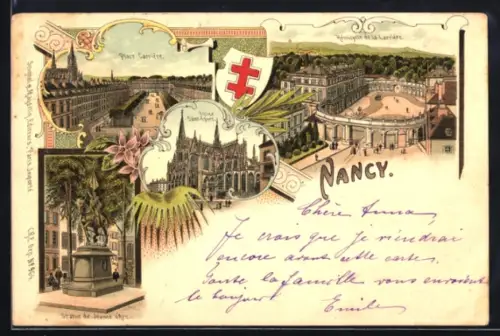 Place Carrière.
Hémicycle de la Carrière.
Église
NANCY.
Statue de Jeanne d'Arc.
Chère Anna,
Je crois que je viendrai
encore avant cette carte.
Toute la famille vous envoient
le bonjour
Emile